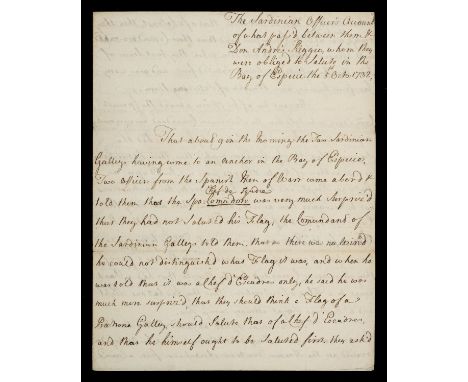 The Sardinian Officers Account
of what pass'd between them &
Don Andrè Reggio, whom they
were obliged to Salute in the
Bay of Especie the 5th Octr. 1732.
That about 9 in the Morning the Two Sardinian
Galleys having come to an anchor in the Bay of Especie,
Two officers from the Spanish Men of Warr came abord &
Chef de
told them that the Spa. Comindore was very much Surpriz'd
that they had not Saluted his Flag, the Comandant of
the Sardinian Galleys told them, that as there was no
he could not distinguish what Flag it was, and when he
was told that it was a Chef d'Escadres only, he said he was
much more surprized that they should think a Flag of a
Patrona Galley, should Salute that of a Chef d'Escadres,
and that he himself ought to be Saluted first, they ask'd